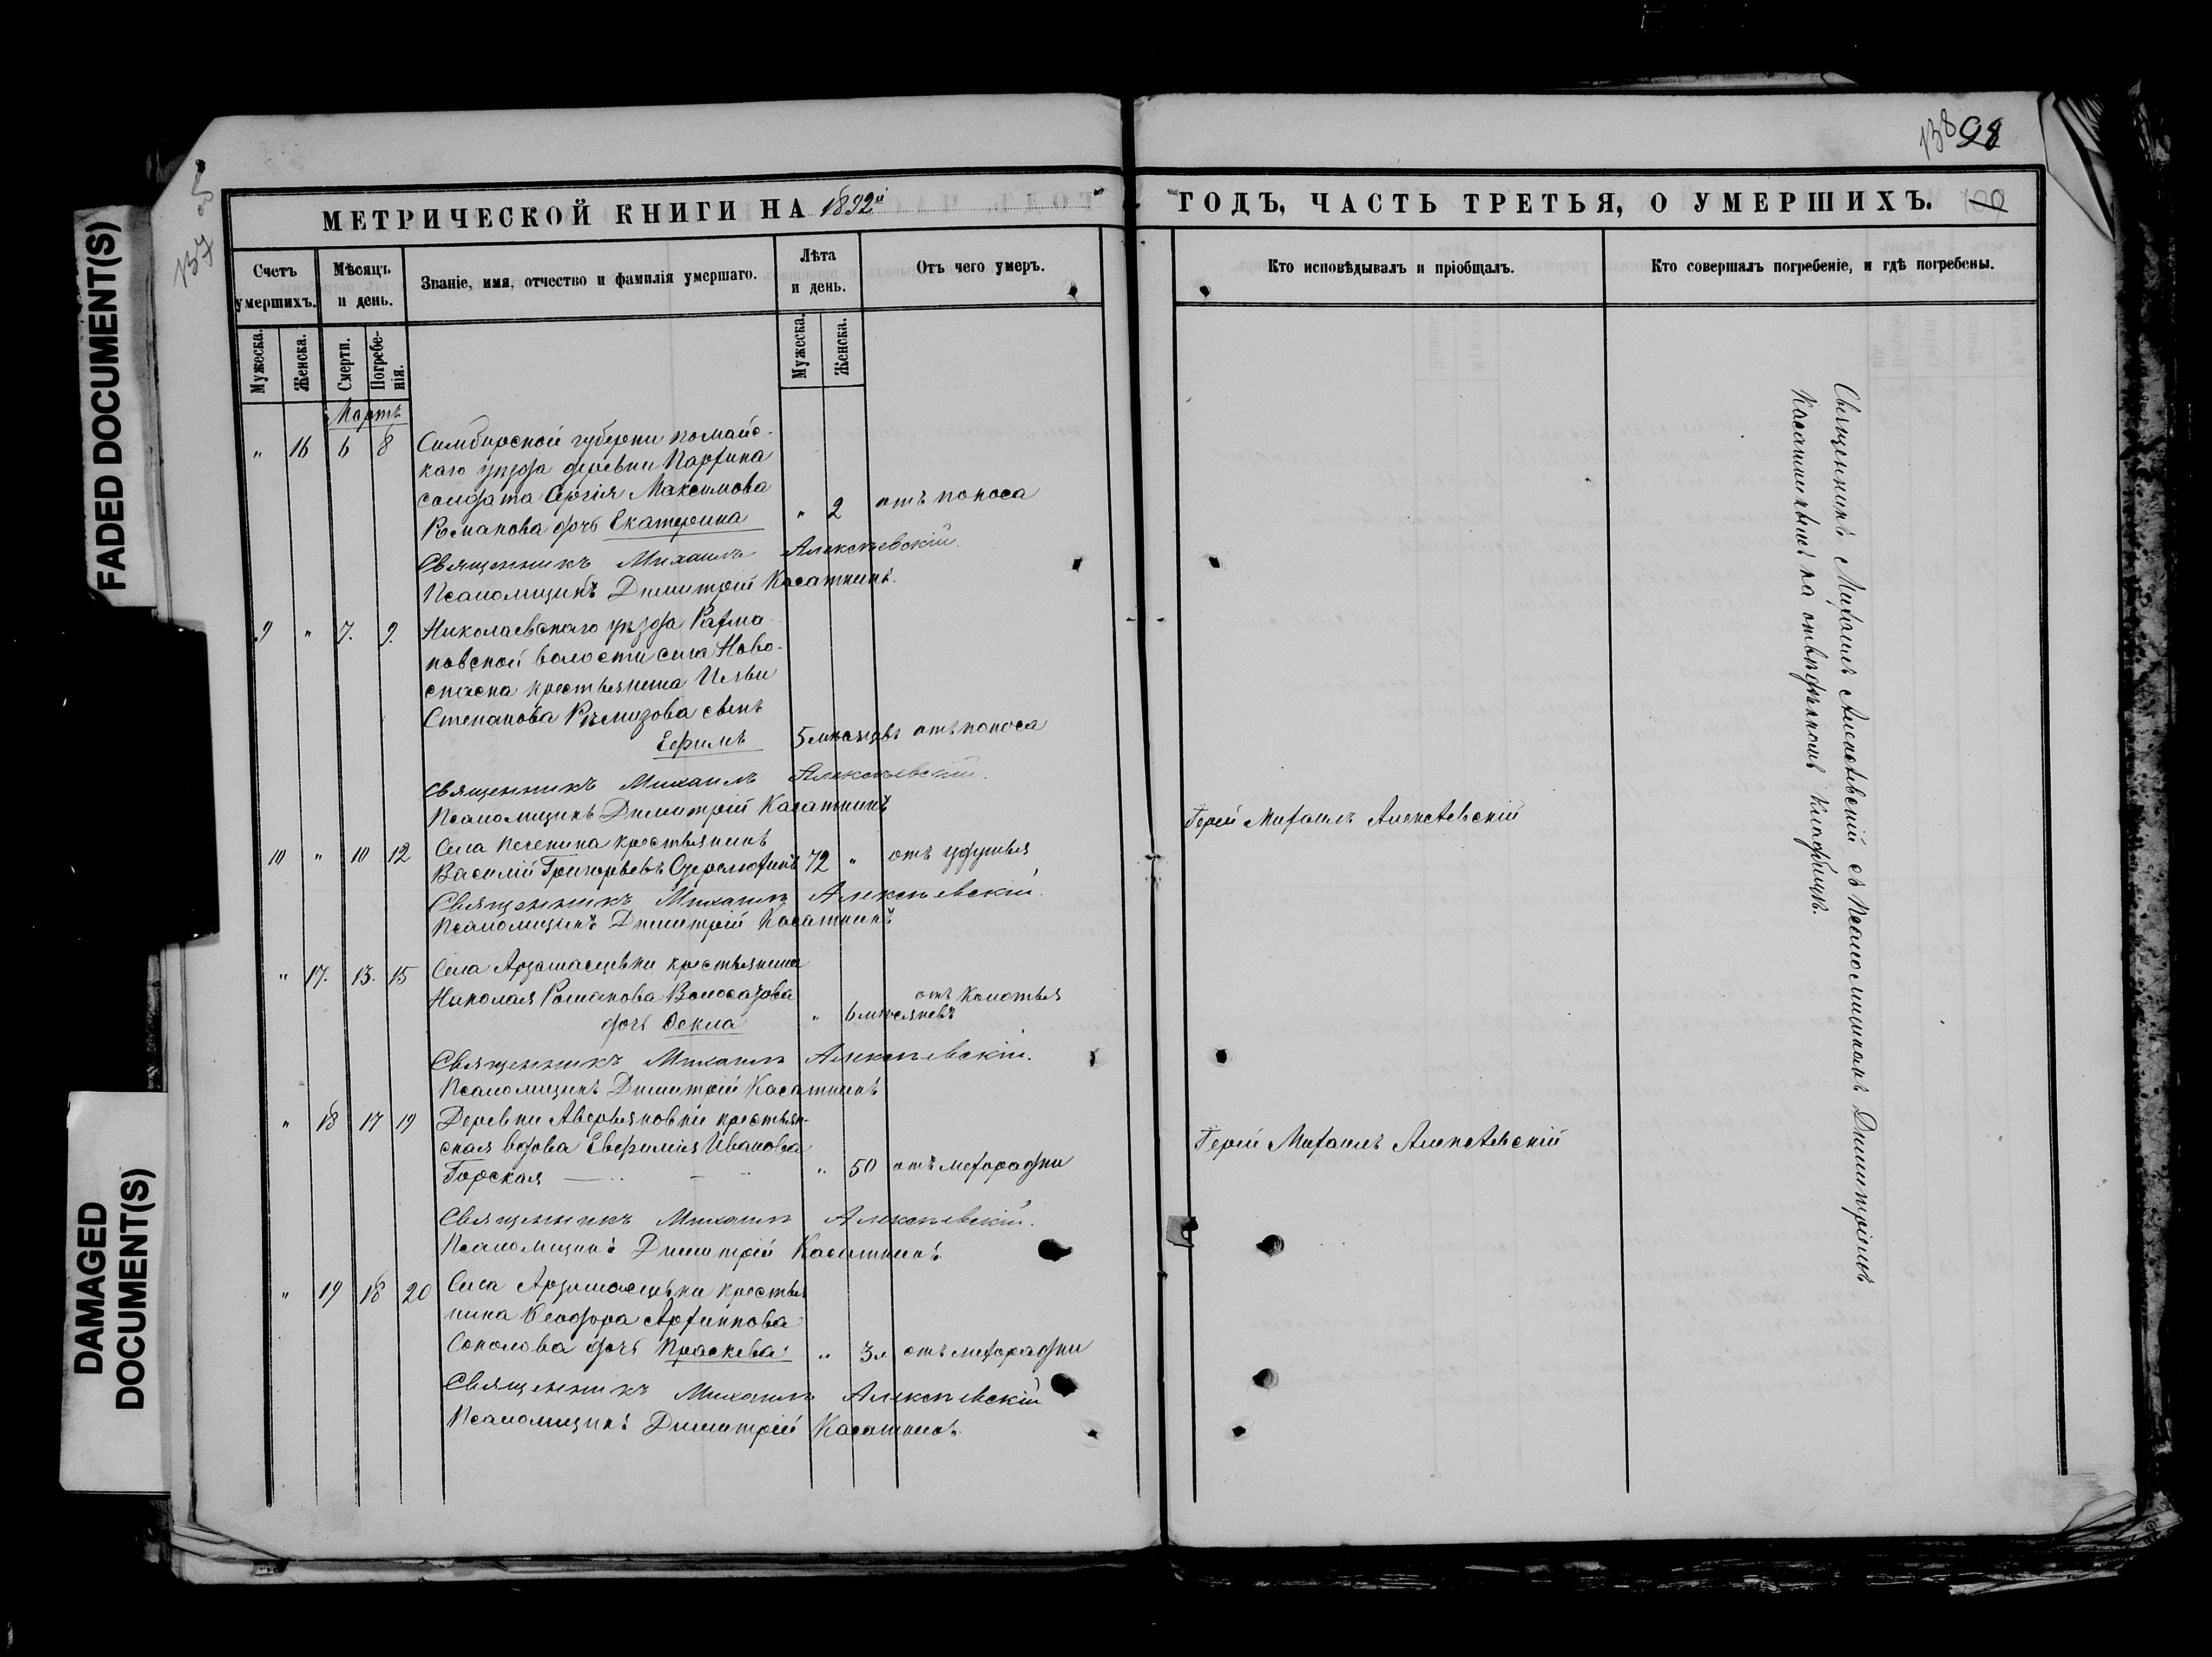 FADED DOCUMENT(S)
DAMAGED
DOCUMENT(S)
137
МЕТРИЧЕСКОЙ КНИГИ НА 1892й
Счетъ
умершихъ.
Мѣсяцъ
и день.
Званіе, имя, отчество и фамилія умершаго.
Лѣта
и день.
Отъ чего умеръ.
Мужеска.
Женска.
Смерти.
Погребе-
нія.
Мужеска.
Женска.
Мартъ
" 16 6 8 Симбирской губерни
каго уѣзда деревни
солдата Сергія Максимова
Романова дочь Екатерина " 2 отъ поноса
Священникъ Михаилъ Алексѣевскій.
Псаломщикъ Димитрій Касаткинъ.
9 " 7. 9. Николаевскаго уѣзда Рахма
новской волости села Ново-
спаска крестьянина Ильи
Степанова Ремизова сынъ
Ефимъ 5 мѣсяцевъ отъ поноса
Священникъ Михаилъ Алексѣевскій.
Псаломщикъ Димитрій Касаткинъ
10 " 10 12 Села крестьянинъ
Василій Григорьевъ 72 " отъ удушья
Священникъ Михаилъ Алексѣевскій.
Псаломщикъ Димитрій Касаткинъ
" 17. 13. 15 Села Арзамасцевки крестьянина
Николая Романова
дочь Ѳекла " 6 мѣсяцевъ отъ колотья
Священникъ Михаилъ Алексѣевскій.
Псаломщикъ Димитрій Касаткинъ
" 18 17 19 Деревни Аверьяновки крестьян-
ская вдова Евфимія Иванова
Горская " 50 отъ лихорадки
Священникъ Михаилъ Алексѣевскій.
Псаломщикъ Димитрій Касаткинъ.
" 19 18 20 Села Арзамасцевки крестья
нина Ѳеодора Архиппова
Соколова дочь Праскева " 3 отъ лихорадки
Священникъ Михаилъ Алексѣевскій
Псаломщикъ Димитрій Касаткинъ.
138 98
ГОДЪ, ЧАСТЬ ТРЕТЬЯ, О УМЕРШИХЪ. 100
Кто исповѣдывалъ и пріобщалъ.
Кто совершалъ погребеніе, и гдѣ погребены.
Іерей Михаилъ Алексѣевскій
Іерей Михаилъ Алексѣевскій
Священникъ Михаилъ Алексѣевскій съ Псаломщикомъ Димитріемъ
Касаткинымъ на отведенномъ кладбищѣ.